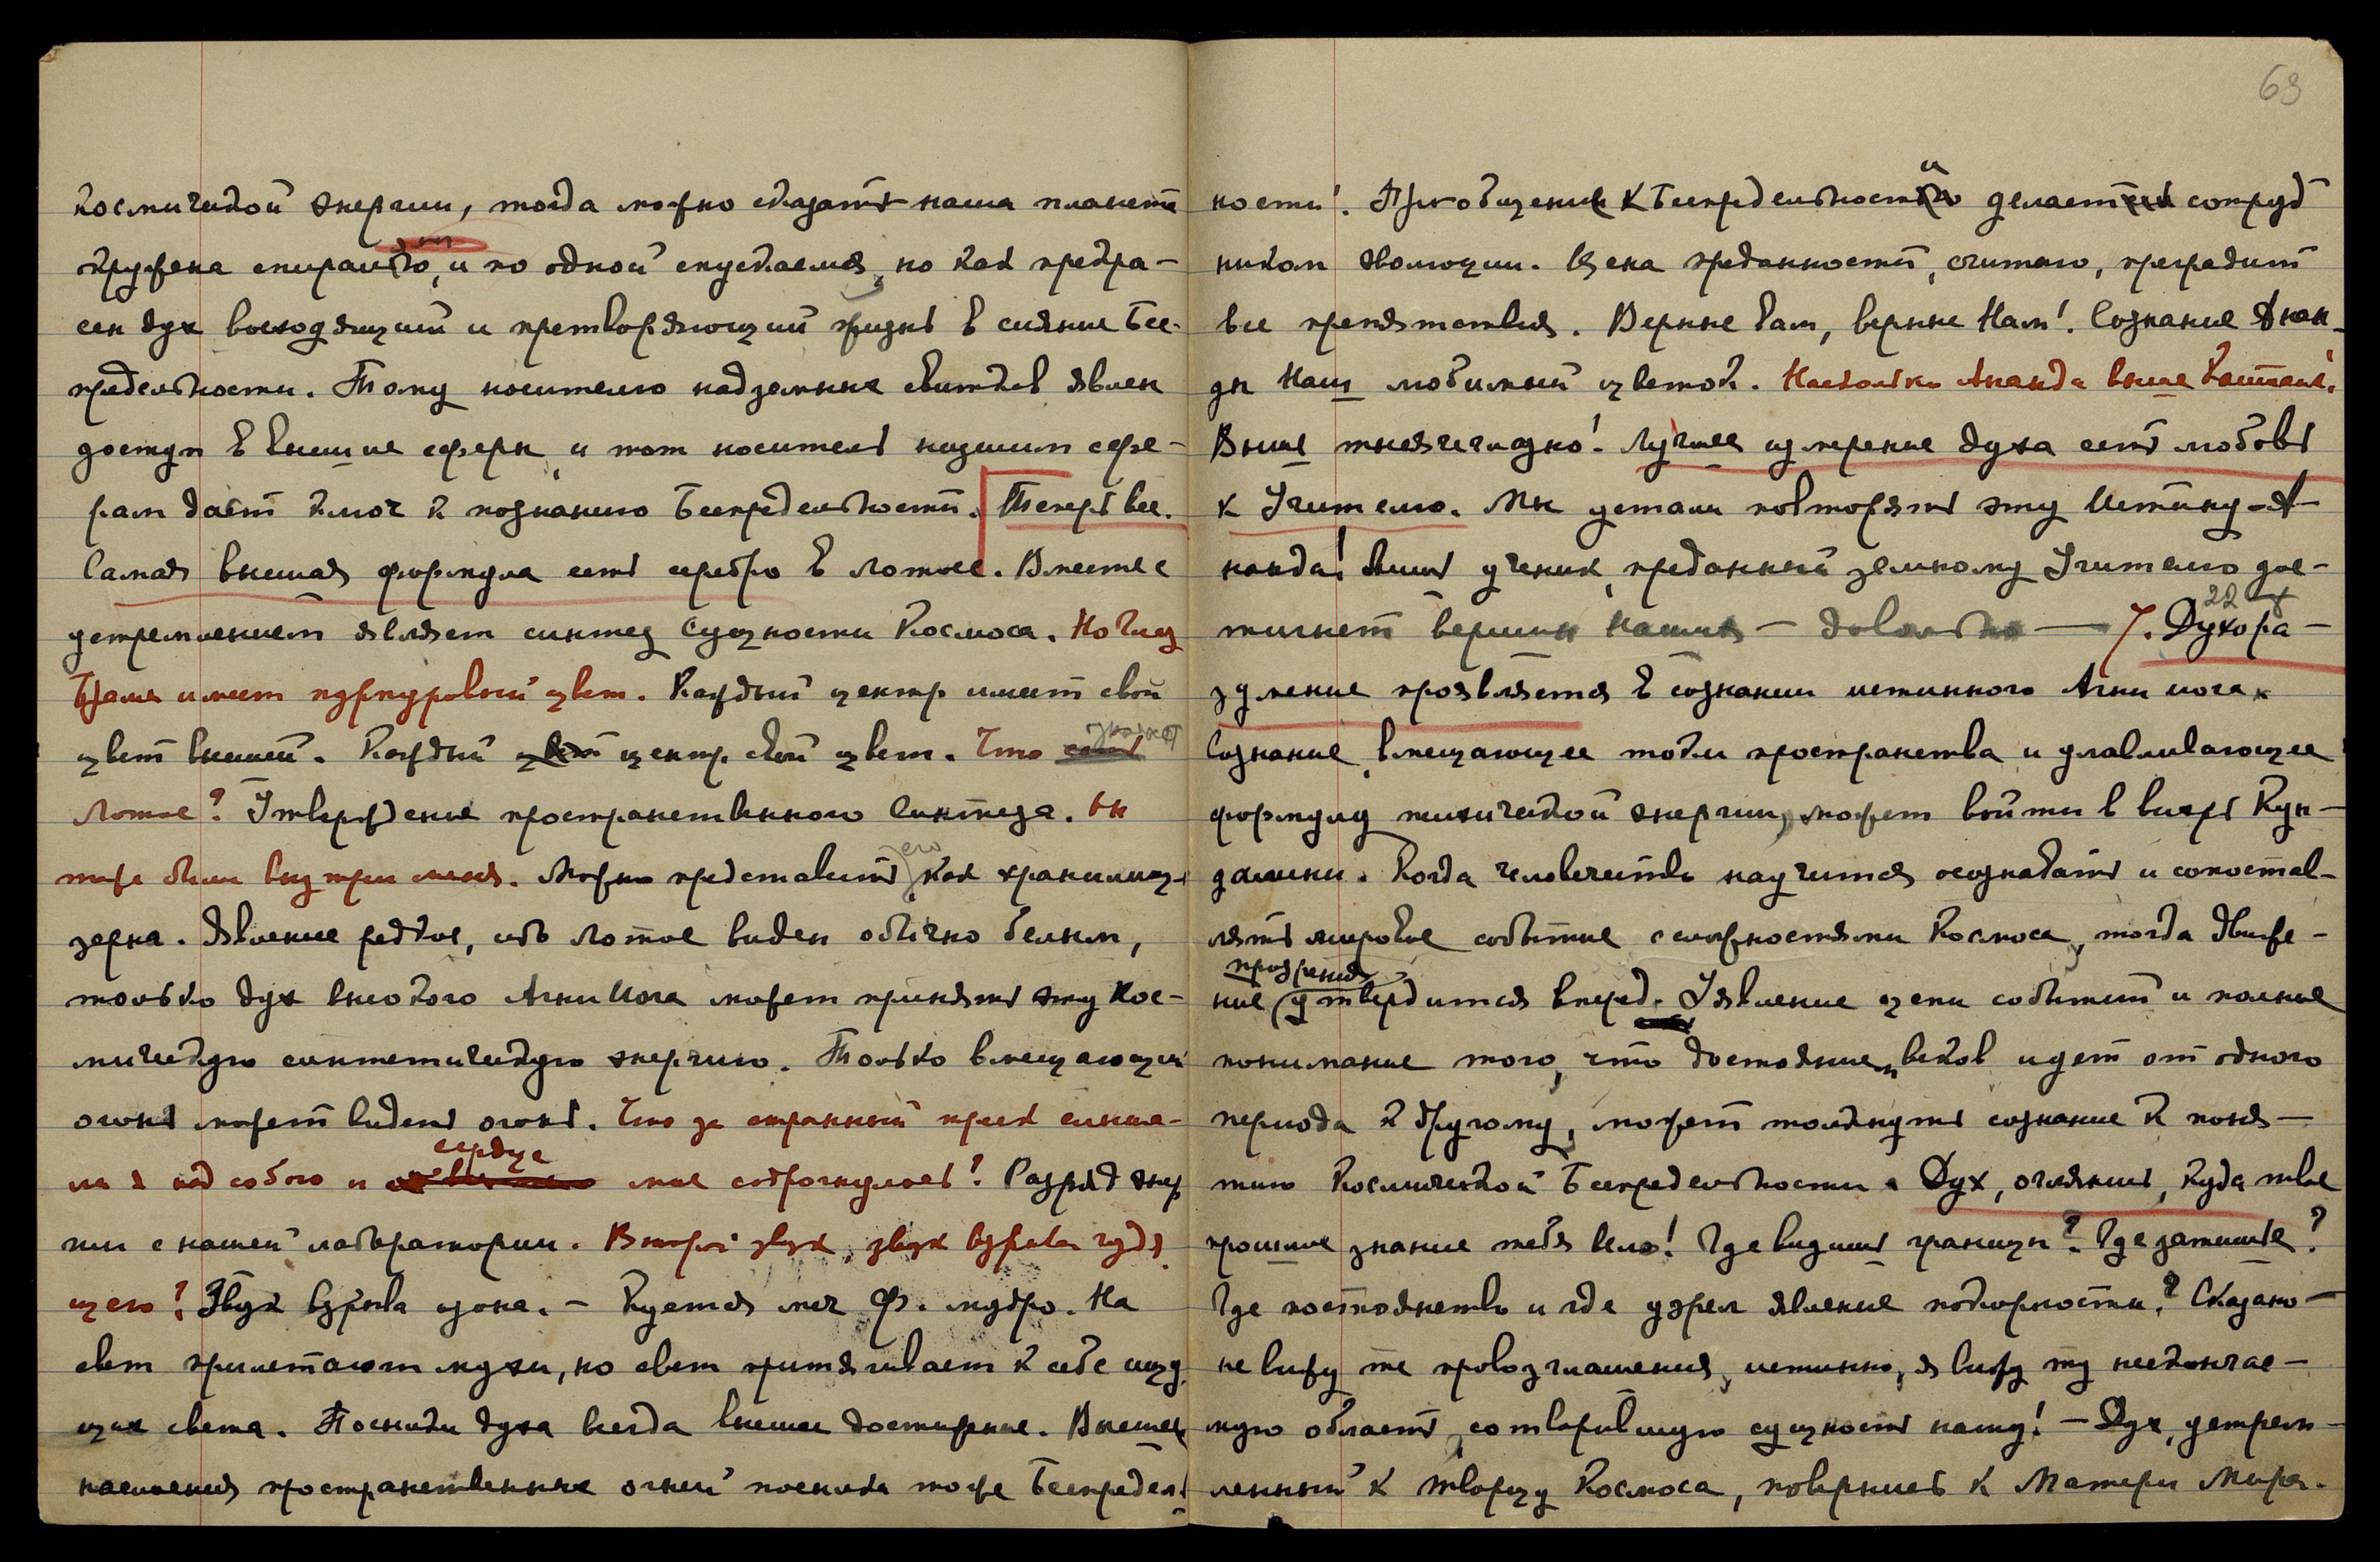 космической энергии, тогда можно сказать наша планета
окружена спиралью, и по одной спускаемся, но как прекра-
сен дух восходящий и претворяющий жизнь в сияние Бес-
предельности. Тому носителю надземных свитков явлен
доступ в высшие сферы, и тот носитель низшим сфе-
рам даст ключ к познанию Беспредельности. Теперь все.
Самая высшая формула есть серебро в лотосе. Вместе с
устремлением являет синтез Сущности Космоса. Но глаз
Брамы имеет пурпуровый цвет. Каждый центр имеет свой
цвет высший. Каждый центр свой цвет. Что значит
Лотос? Утверждение пространственного Синтеза.
тоже были внутри меня. Можно представить его, как хранилище
зерна. Явление редкое, ибо Лотос виден обычно белым,
только дух высокого Агни Йога может принять эту Кос-
мическую синтетическую энергию. Только вмещающий
огонь может видеть огонь. Что за странный треск слыша-
ла я над собою и сердце мое содрогнулось? Разряд энер
гии с нашей лаборатории. Вторый звук, звук взрыва чуде
щего? Звук взрыва озона. – Куется меч Ф. мудро. На
свет прилетают мухи, но свет притягивает к себе ищу
щих света. Посылки духа всегда высшее достижение. Высшее
насыщения пространственных огней посылка тоже Беспредель
63
ности! Приобщение к Беспредельности делает сотруд
ником эволюции. Цена преданности, считаю, преградит
все препятствия. Верные вам, верные Нам! Сознание Анан-
ды Наш любимый цветок. Насколько Ананда выше Кашьапы.
Выше тысячекрадно! Лучшее измерение духа есть любовь
к Учителю. Мы устали повторять эту Истину – А-
нанда! Лишь ученик, преданный земному Учителю дос-
тигнет вершин Наших – довольно – 7. Духора-
22
зумение проявляется в сознании истинного Агни йога.
Сознание, вмещающее токи пространства и улавливающее
формулу психической энергии, может войти в вихрь Кун-
далини. Когда человечество научится осознавать и сопостав-
лять мировые события с сложностями Космоса, тогда движе-
прозрения
ние утвердится вперед. Уявление цепи событий и полное
понимание того, что достояние веков идет от одного
периода к другому, может толкнуть сознание к поня-
тию Космической Беспредельности. Дух, оглянись, куда твое
прошлое знание тебя вело! Где видишь границы? Где затишье?
Где постоянство и где узрел явление покорности? Сказано –
не вижу те провозглашения, истинно, я вижу ту нескончае-
мую область, сотворившую сущность нашу! – Дух, устрем-
ленный к творцу Космоса, повернись к Матери Мира.